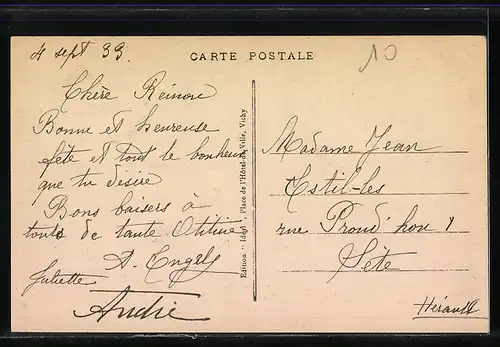 4 sept 33.
CARTE POSTALE
10
Chère Reinou
Bonne et heureuse
fête et tout le bonheur
que tu désire
Bons baisers à
touts de tante Otiline
A. Engels
Juliette
André
Edition " Idéal " Place de l'Hôtel-de-Ville, Vichy
Madame Jean
Estil-les
rue Proud'hon 1
Sète
Hérault